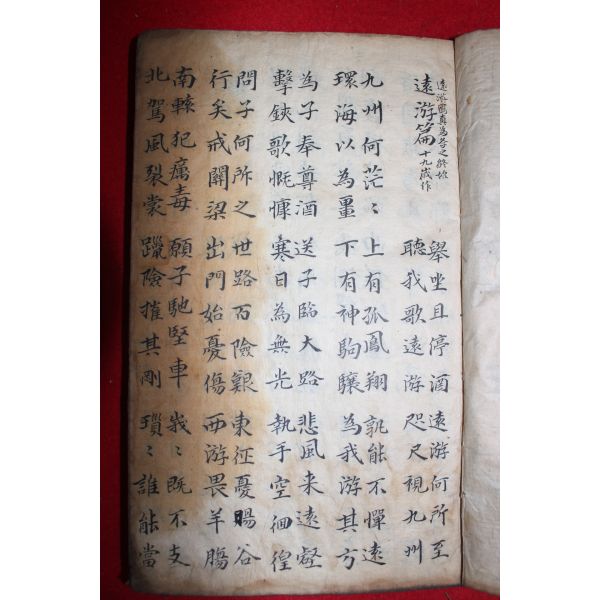 遠游篇 十九歲作
舉坐且停酒
聽我歌遠游
遠游何所至
咫尺視九州
九州何茫〻
環海以為畺
上有孤鳳翔
下有神駒驤
孰能不憚遠
為我游其方
為子奉尊酒
擊鋏歌慨慷
送子臨大路
寒日為無光
悲風来遠壑
執手空徊徨
問子何所之
行矣戒關梁
世路百險艱
出門始憂傷
東征憂暘谷
西游畏羊膓
南轅犯癘毒
北駕風裂裳
願子馳堅車
躐險摧其剛
峩〻既不支
瑣〻誰能當